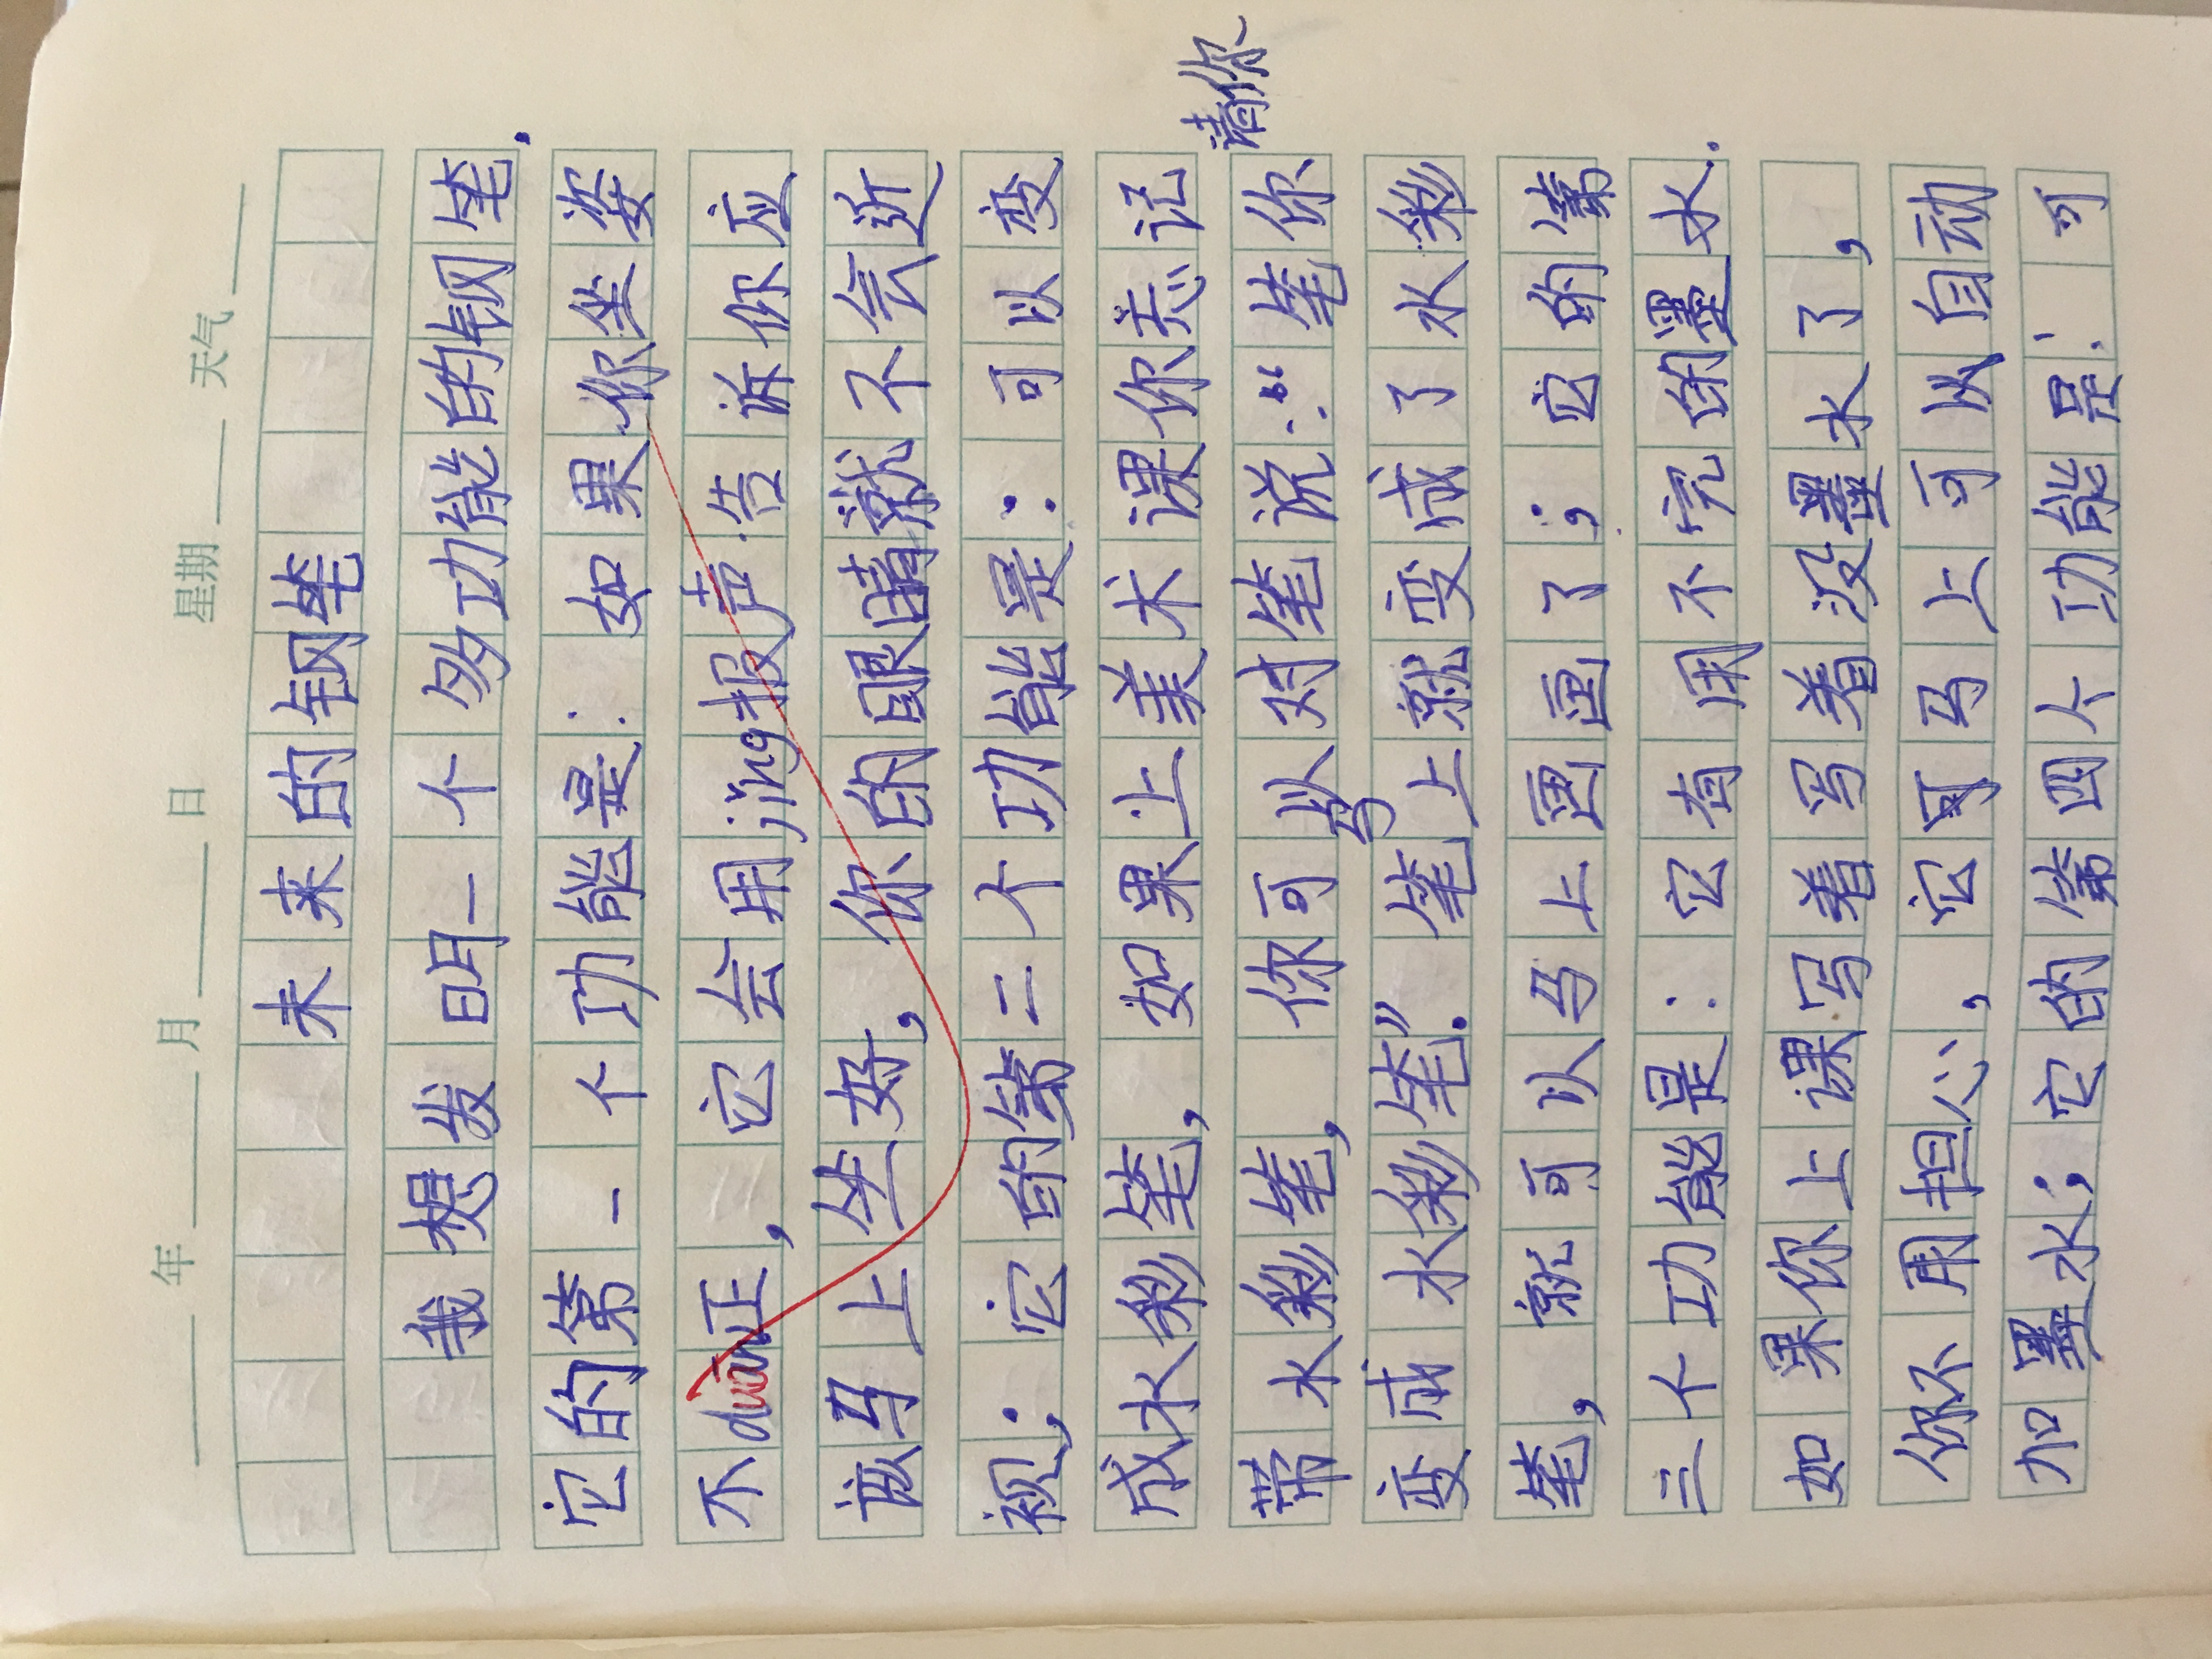 年 月 日 星期 天气
未来的钢笔
我想发明一个多功能的钢笔.
它的第一个功能是:如果你坐姿
不duān正,它会用jǐng报声告诉你应
该马上坐好,你的眼睛就不会近
视;它的第二个功能是:可以变
成水彩笔,如果上美术课你忘记
带水彩笔,你可以对笔说:“笔请你
变成水彩笔”.笔马上就变成了水彩
笔,就可以马上画画了;它的第
三个功能是:它有用不完的墨水.
如果你上课写着写着没墨水了,
你不用担心,它可马上可以自动
加墨水;它的第四个功能是:可